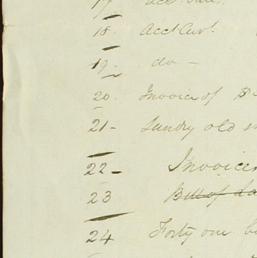 17 Acct
18. Acct Curt.
19. do -
20. Invoice of
21- Sundry old
22- Invoices
23 Bill of
24 Forty one